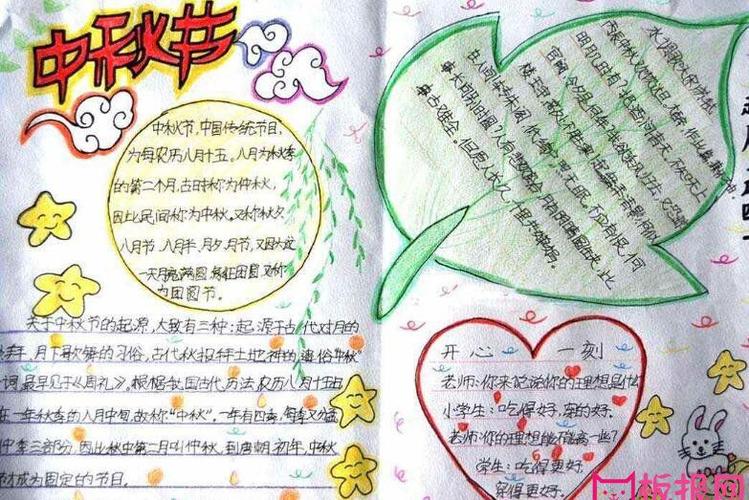 中秋节
中秋节,中国传统节日,
为每农历八月十五。八月为秋季
的第二个月,古时称为仲秋,
因此民间称为中秋。又称秋夕,
八月节,八月半,月夕,月节,又因为这
一天月亮满圆,象征团圆,又称
为团圆节。
关于中秋节的起源,大致有三种:起源于古代对月的
月下歌舞的习俗,古代秋报拜土地神的遗俗"中秋"
一词,最早见于《周礼》。根据我国古代历法,农历八月十五
在一年秋季的八月中旬,故称"中秋"。一年有四季,每季又分孟
仲季三部分,因此秋中第二月叫仲秋,到唐朝初年,中秋
才成为固定的节日。
水调歌头
丙辰中秋,欢饮达旦,大醉,作此篇,兼怀子由
明月几时有?把酒问青天。不知天上
宫阙,今夕是何年。我欲乘风归去,又恐琼
楼玉宇,高处不胜寒。起舞弄清影,何似
在人间。转朱阁,低绮户,照无眠。不应有恨,何
事长向别时圆?人有悲欢离合,月有阴晴圆缺,此
事古难全。但愿人长久,千里共婵娟。
开心一刻
老师:你来说说你的理想是什
小学生:吃得好,穿的好.
老师:你的理想能不能高一些?
学生:吃得更好,
穿得更好.
板报网